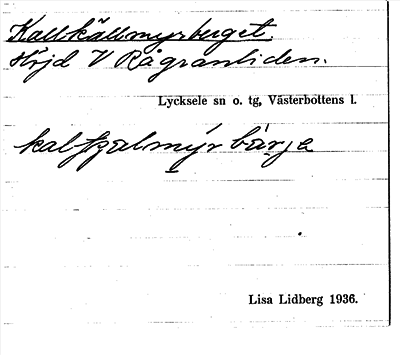 Kallkällmyrberget.
Höjd V Rågranliden.
Lycksele sn o. tg, Västerbottens l.
Lisa Lidberg 1936.